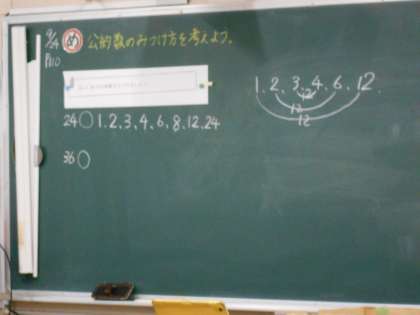 9/24
P110
め 公約数のみつけ方を考えよう。
24 1、2、3、4、6、8、12、24
36
1、2、3、4、6、12、
12
12
12